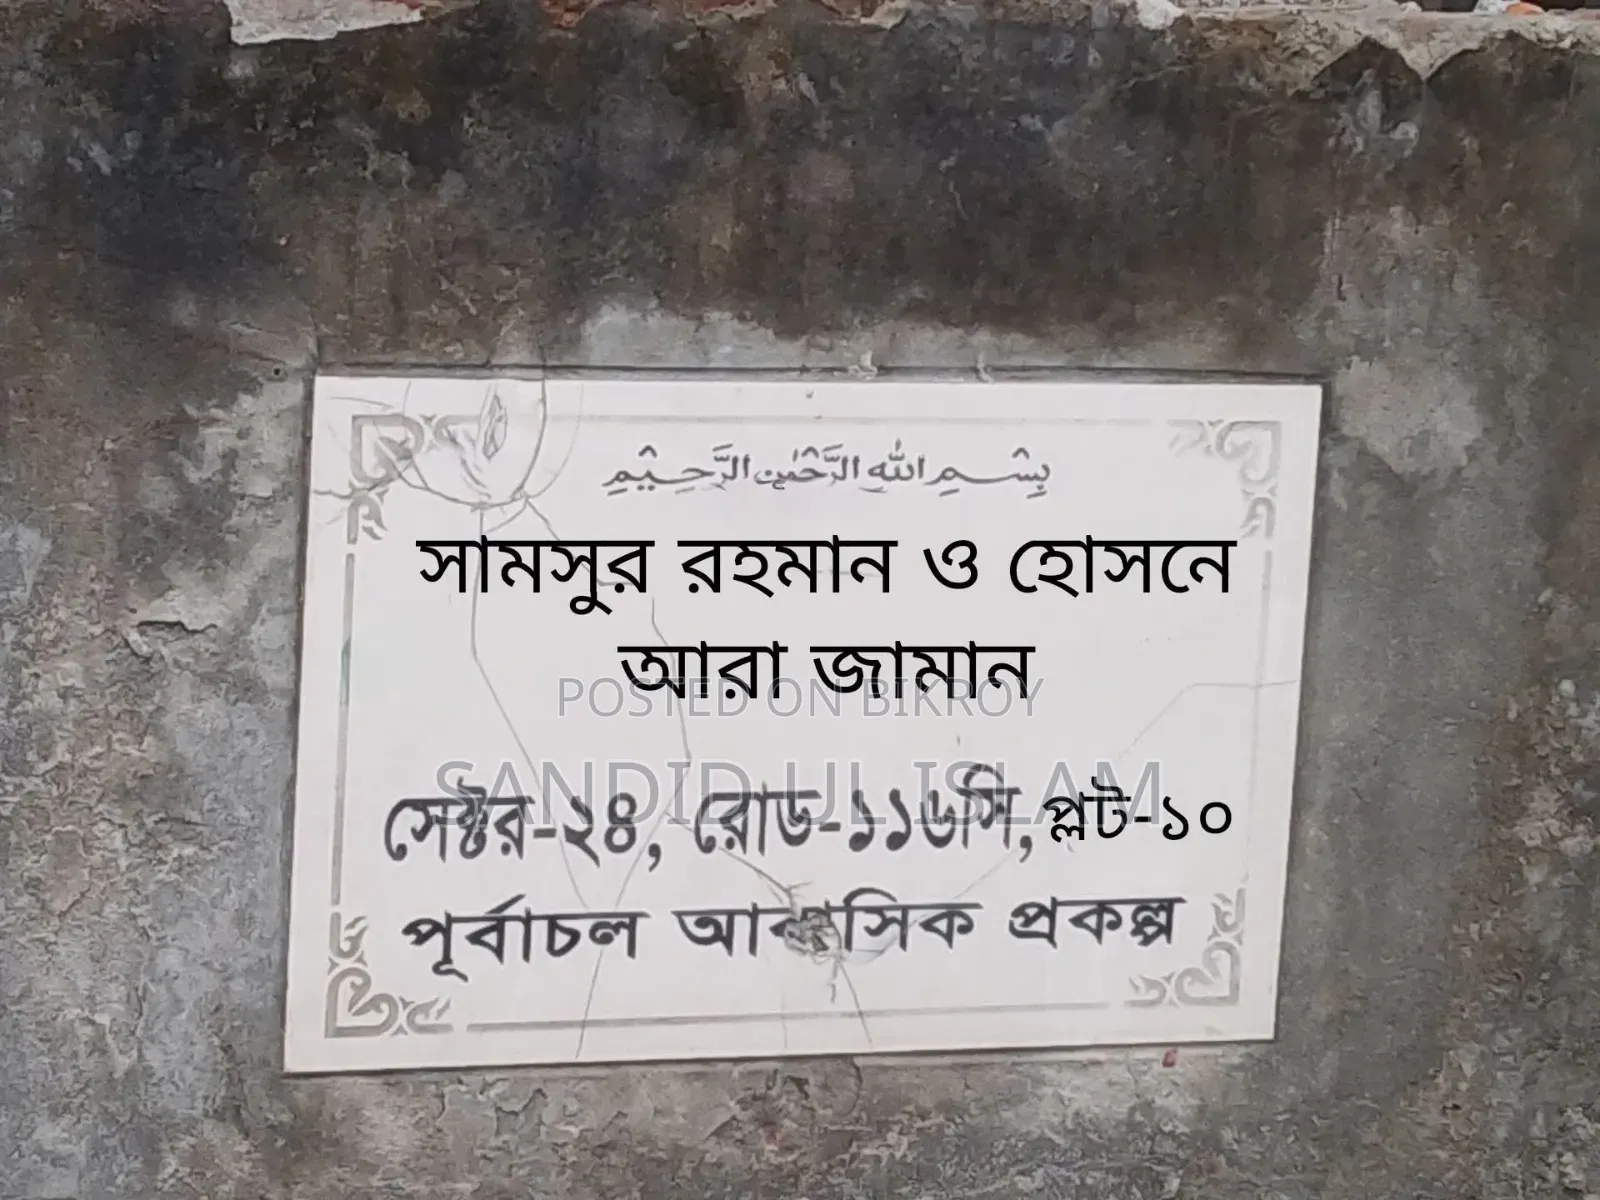 بِسْمِ اللهِ الرَّحْمٰنِ الرَّحِيْمِ
সামসুর রহমান ও হোসনে
আরা জামান
POSTED ON BIKROY
SANDID UL ISLAM
সেক্টর-২৪, রোড-১১৬সি, প্লট-১০
পূর্বাচল আবাসিক প্রকল্প